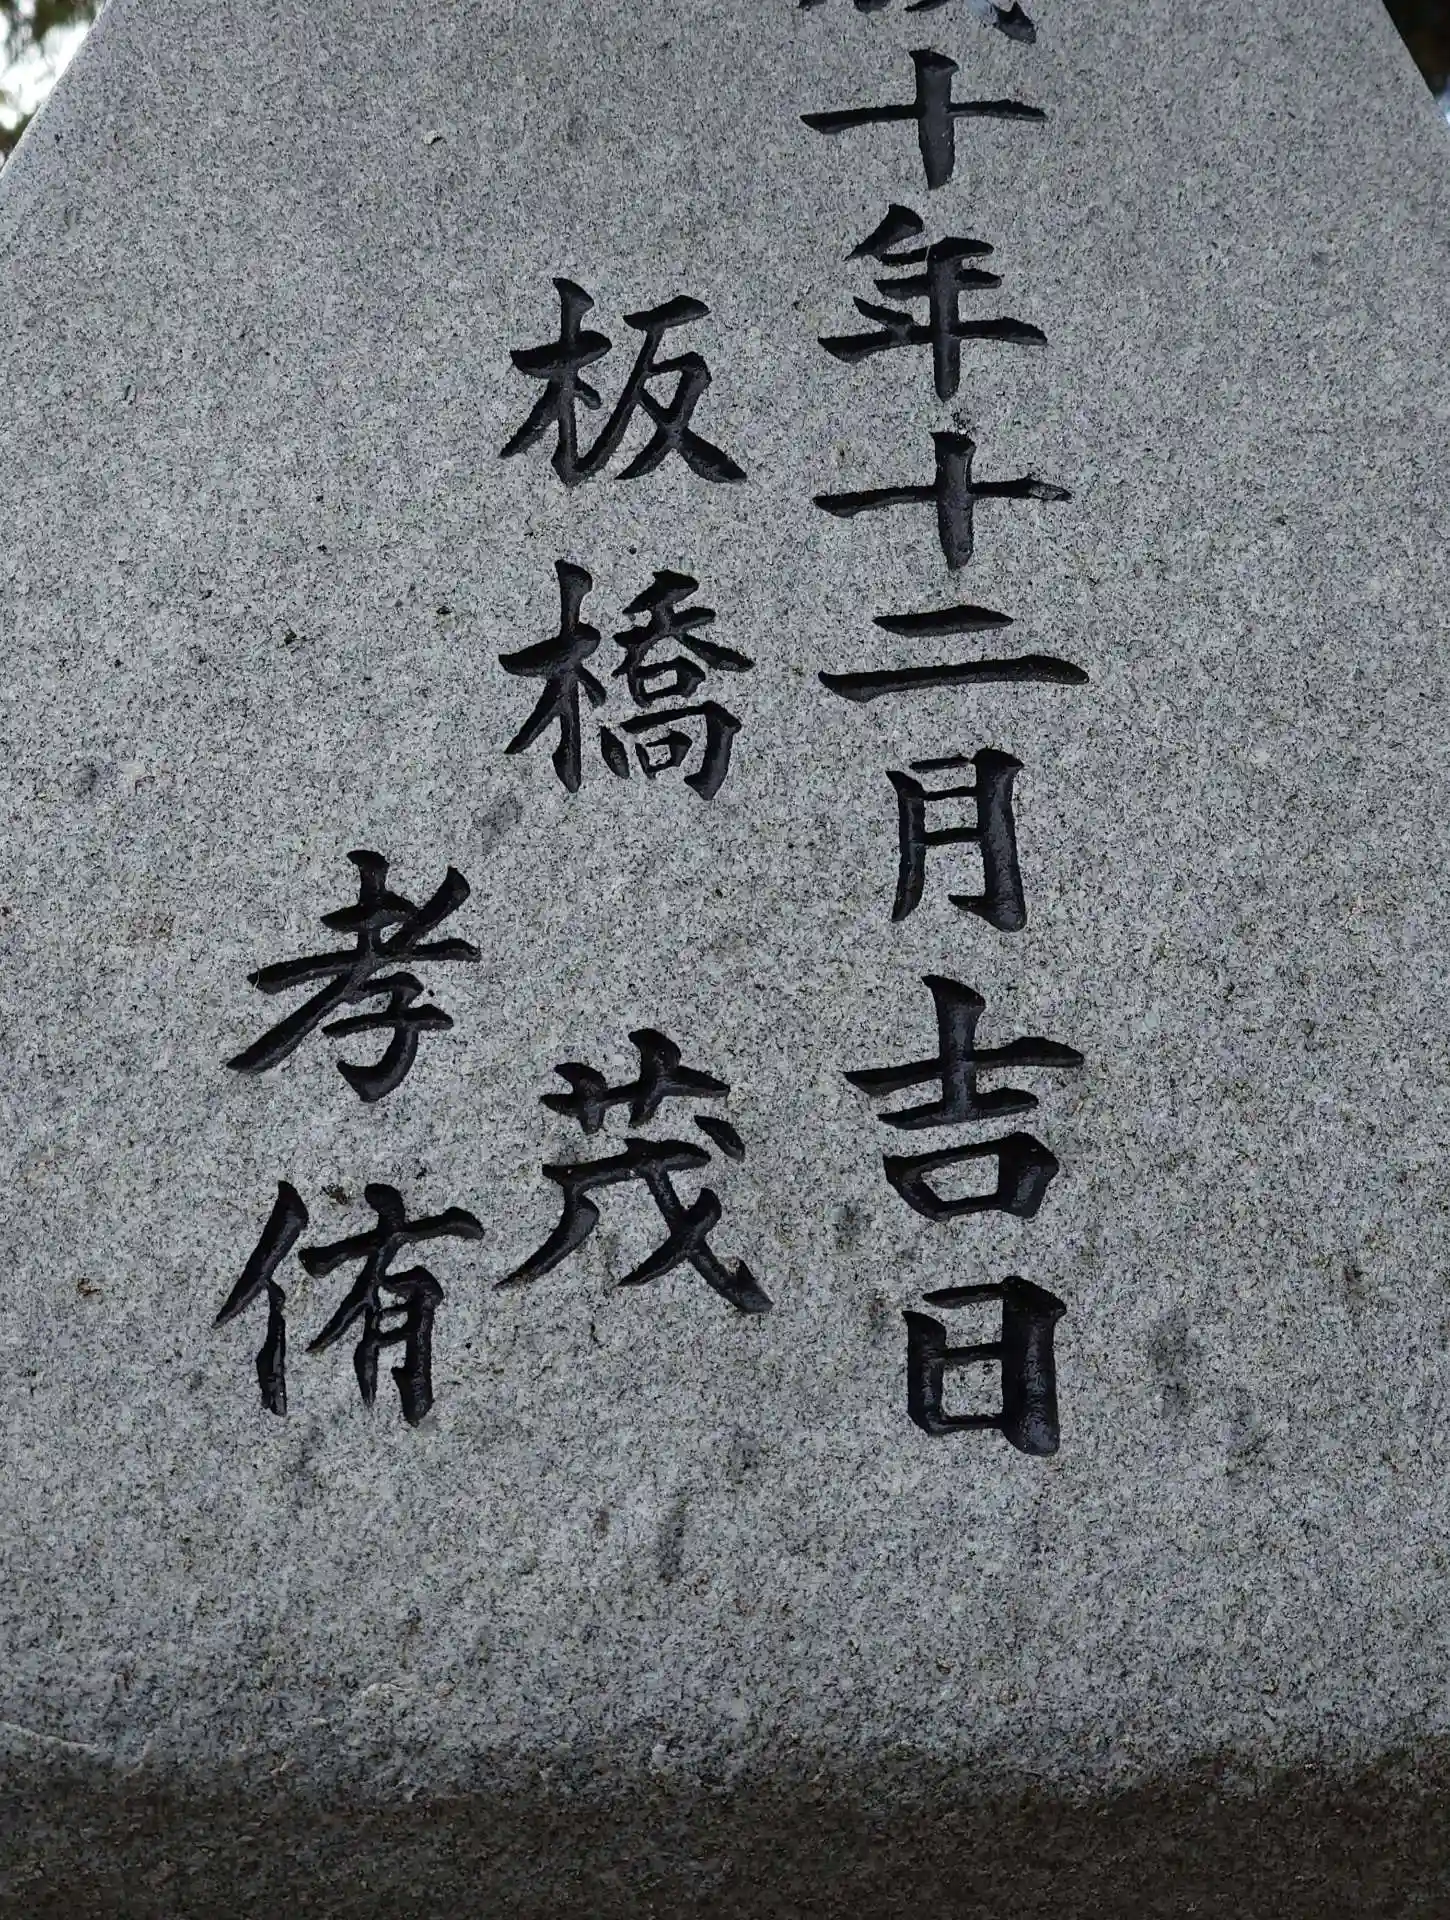 十年十二月吉日
板橋 茂
孝侑